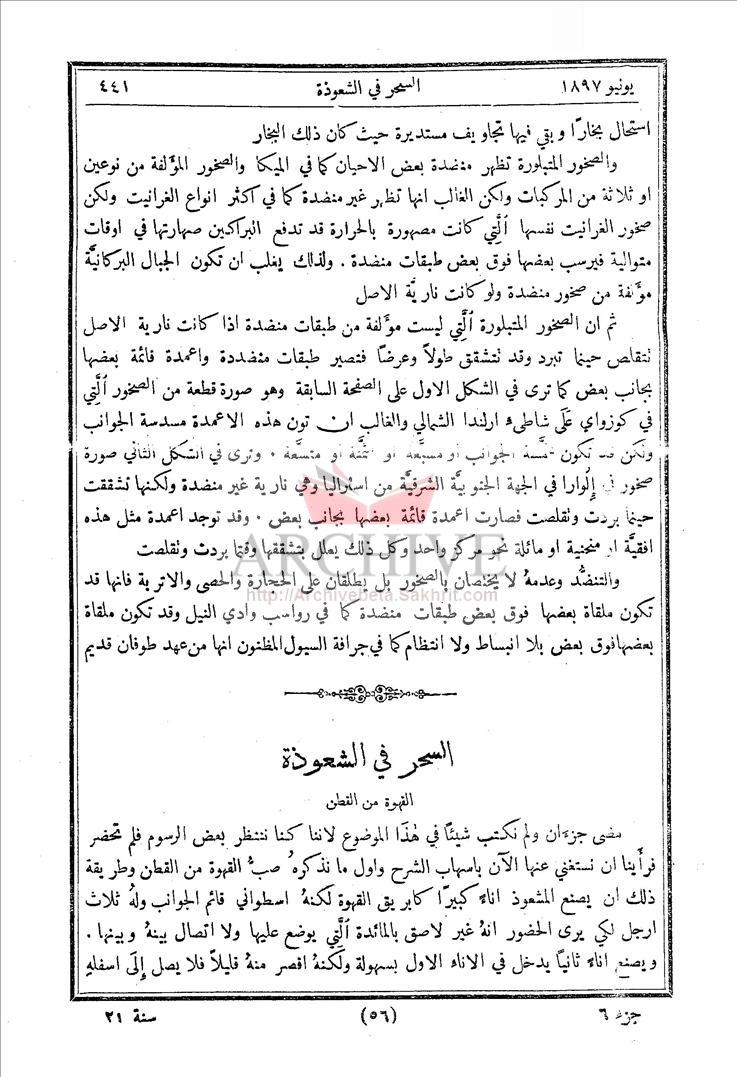 يونيو ١٨٩٧ السحر في الشعوذة ٤٤١
استحال بخارًا وبقي فيها تجاويف مستديرة حيث كان ذلك البخار
والصخور المتبلورة تظهر منضدة بعض الاحيان كما في الميكا والصخور المؤلفة من نوعين
او ثلاثة من المركبات ولكن الغالب انها تظهر غير منضدة كما في اكثر انواع الغرانيت ولكن
صخور الغرانيت نفسها الَّتي كانت مصهورة بالحرارة قد تدفع البراكين صهارتها في اوقات
متوالية فيرسب بعضها فوق بعض طبقات منضدة . ولذلك يغلب ان تكون الجبال البركانيَّة
مؤلفة من صخور منضدة ولو كانت ناريَّة الاصل
ثم ان الصخور المتبلورة الَّتي ليست مؤلفة من طبقات منضدة اذا كانت نارية الاصل
تتقلص حينما تبرد وقد تتشقق طولاً وعرضاً فتصير طبقات منضددة واعمدة قائمة بعضها
بجانب بعض كما ترى في الشكل الاول على الصفحة السابقة وهو صورة قطعة من الصخور الَّتي
في كوزواي عَلَى شاطىء ارلندا الشمالي والغالب ان تون هذه الاعمدة مسدسة الجوانب
ولكن قد تكون مخمَّسة الجوانب او مسبَّعة او مثمَّنة او متسَّعة . وترى في الشكل الثاني صورة
صخور في إِلوارا في الجهة الجنوبيَّة الشرقيَّة من استراليا وهي نارية غير منضدة ولكنها تشققت
حينما بردت وتقلصت فصارت اعمدة قائمة بعضها بجانب بعض . وقد توجد اعمدة مثل هذه
افقيَّة او منحنية او مائلة نحو مركز واحد وكل ذلك يعلل بتشققها وقتما بردت وتقلصت
والتنضُّد وعدمهُ لا يختصان بالصخور بل يطلقان على الحجارة والحصى والاتربة فانها قد
تكون ملقاة بعضها فوق بعض طبقات منضدة كما في رواسب وادي النيل وقد تكون ملقاة
بعضها فوق بعض بلا انبساط ولا انتظام كما في جرافة السيول المظنون انها من عهد طوفان قديم
ARCHIVE
http://Archivebeta.Sakhrit.com
السحر في الشعوذة
القهوة من القطن
مضى جزءان ولم نكتب شيئًا في هٰذَا الموضوع لاننا كنا ننتظر بعض الرسوم فلم تحضر
فرأَينا ان نستغني عنها الآن باسهاب الشرح واول ما نذكرهُ صبُّ القهوة من القطن وطريقة
ذلك ان يصنع المشعوذ اناءً كبيرًا كابريق القهوة لكنهُ اسطواني قائم الجوانب ولهُ ثلاث
ارجل لكي يرى الحضور انهُ غير لاصق بالمائدة الَّتي يوضع عليها ولا اتصال بينهُ وبينها .
ويصنع اناءً ثانياً يدخل في الاناء الاول بسهولة ولكنهُ اقصر منهُ قليلاً فلا يصل إِلَى اسفلهِ
جزء ٦ (٥٦) سنة ٢١